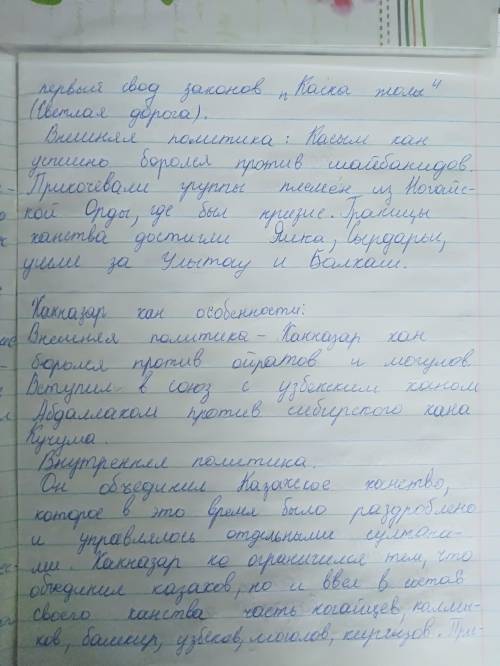 первый свод законов „Каска жолы"
(Светлая дорога).
Внешняя политика: Касым хан
успешно боролся против шайбанидов.
Прикочёвали группы племён из Ногайс-
кой Орды, где был кризис. Границы
ханства достигли Яика, Сырдарьи,
ушли за Улытау и Балхаш.
Хакназар хан особенности:
Внешняя политика – Хакназар хан
боролся против ойратов и могулов.
Вступил в союз с узбекским ханом
Абдаллахом против сибирского хана
Кучума.
Внутренняя политика.
Он объединил Казахское ханство,
которое в это время было раздроблено
и управлялось отдельными султана-
ми. Хакназар не ограничился тем, что
объединил казахов, но и ввел в состав
своего ханства часть ногайцев, калмы-
ков, башкир, узбеков, моголов, киргизов. При-